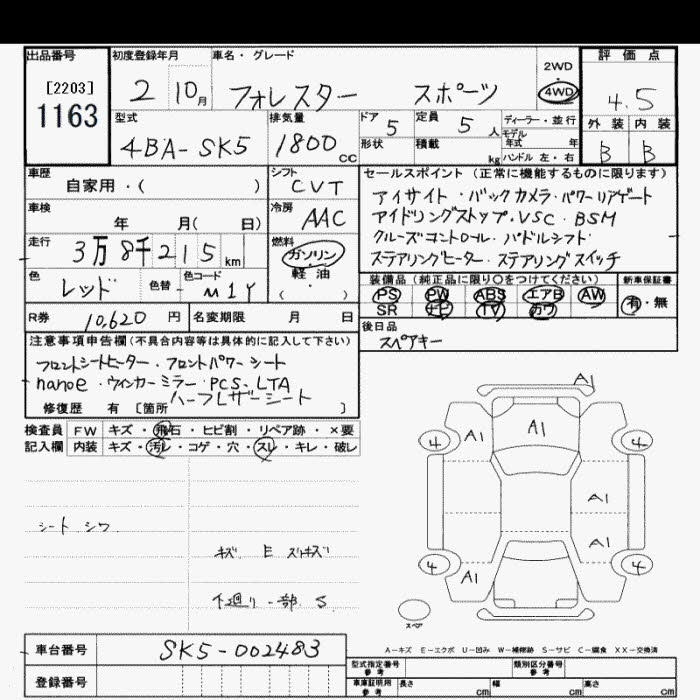 出品番号 初度登録年月 車名・グレード 評価点
[2203]
1163
2 10月 フォレスター スポーツ 2WD・4WD 4.5
型式 排気量 ドア 定員 ディーラー・並行 外装 内装
4BA-SK5 1800cc 5 5人 モデル年式 年 B B
形状 積載 kg ハンドル 左・右
車歴 シフト セールスポイント (正常に機能するものに限ります)
自家用・( ) CVT アイサイト・バックカメラ・パワーリアゲート
車検 冷房 アイドリングストップ・VSC・BSM
年 月( 日) AAC クルーズコントロール・パドルシフト・
走行 燃料 ステアリングヒーター・ステアリングスイッチ
3万8千215km ガソリン・軽油・( )
色 色替 色コード 装備品 (純正品に限り○をつけてください) 新車保証書
レッド M1Y PS PW ABS エアB AW 有・無
SR ナビ TV カワ
R券 10,620円 名変期限 月 日 後日品
スペアキー
注意事項申告欄(不具合内容等は具体的に記入して下さい)
フロントシートヒーター・フロントパワーシート
nanoe・ウィンカーミラー・PCS・LTA
ハーフレザーシート
修復歴 有 [箇所 ]
検査員 FW キズ・飛石・ヒビ割・リペア跡・×要
記入欄 内装 キズ・汚レ・コゲ・穴・スレ・キレ・破レ
A1
4 A1 A1 4
A1
A1
4 A1 4
スペア
シート シワ
キズ E スリキズ
下廻り一部 S
A-キズ E-エクボ U-凹み W-補修跡 S-サビ C-腐食 XX-交換済
車台番号 SK5-002483
登録番号
型式指定番号 参考 類別区分番号 参考
車庫証明用 参考 長さ cm 幅 cm 高さ cm